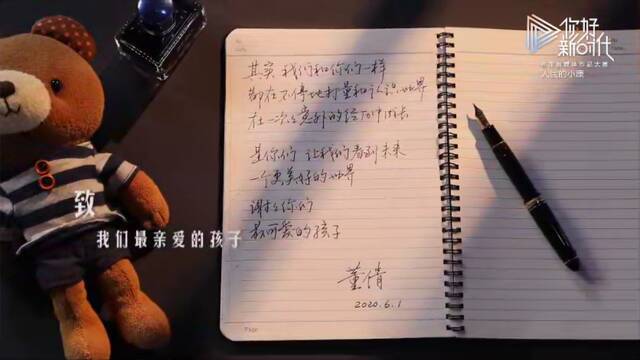 你好
新时代
人民的小康
其实 我们和你们一样
都在不停地打量和认识世界
在一次次意外的经历中成长
是你们 让我们看到未来
一个更美好的世界
谢谢你们
最可爱的孩子
董倩
2020.6.1
致
我们最亲爱的孩子